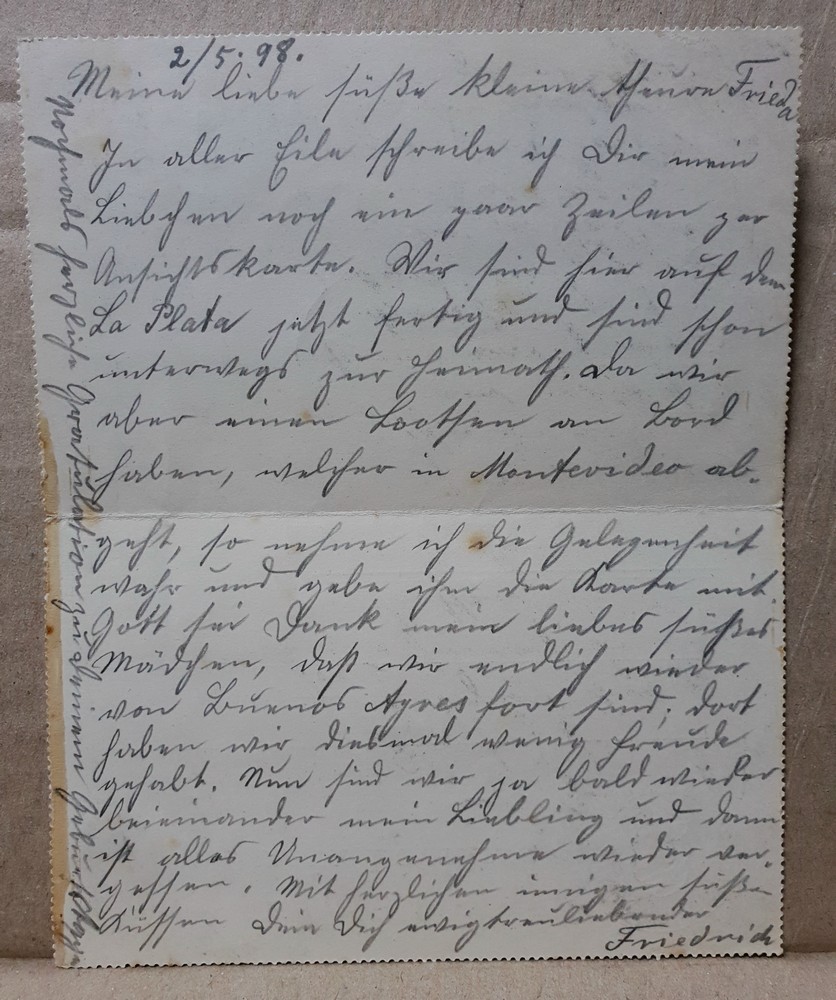 2/5. 98.
Meine liebe süße kleine theure Frieda
In aller Eile schreibe ich Dir mein
Liebchen noch ein paar Zeilen zur
Ansichtskarte. Wir sind hier auf dem
La Plata jetzt fertig und sind schon
unterwegs zur Heimath. Da wir
aber einen Lootsen an Bord
haben, welcher in Montevideo ab-
geht, so nehme ich die Gelegenheit
wahr und gebe ihm die Karte mit.
Gott sei Dank mein liebes süßes
Mädchen, daß wir endlich wieder
von Buenos Ayres fort sind; dort
haben wir diesmal wenig Freude
gehabt. Nun sind wir ja bald wieder
beieinander mein Liebling und dann
ist alles Unangenehme wieder ver-
gessen. Mit herzlichen innigen süßen
Küssen Dein Dich ewigtreuliebender
Friedrich
Nochmals herzliche Gratulation zu Deinem Geburtstage